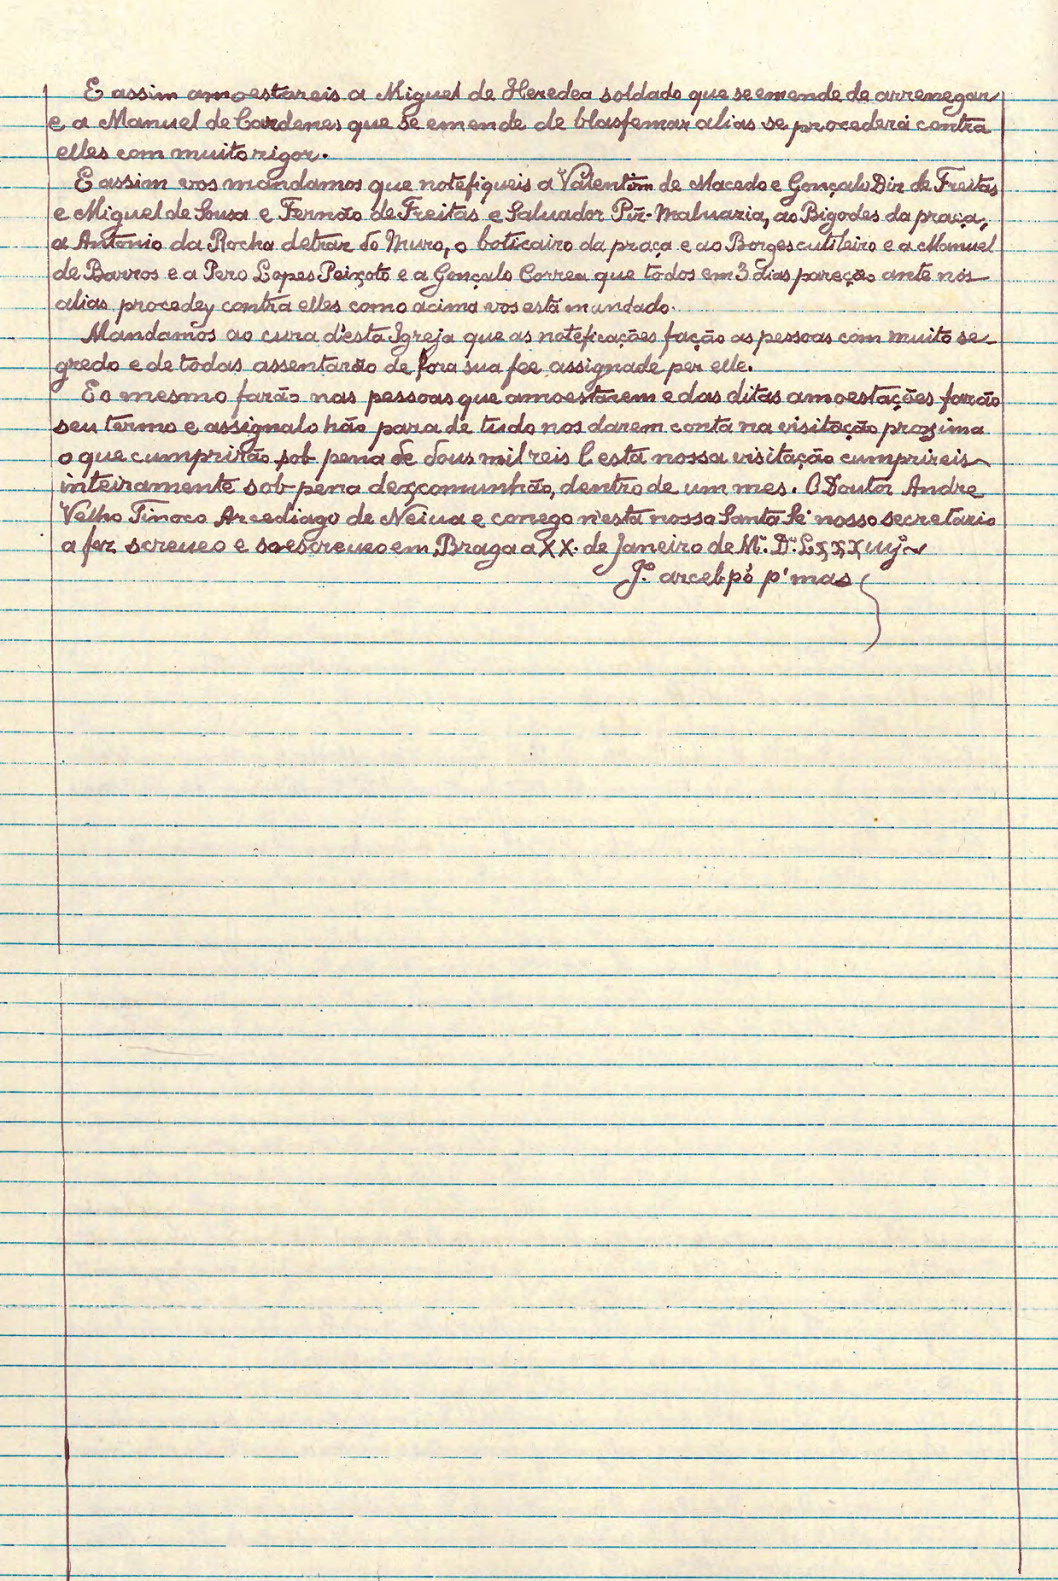 E assim amoestareis a Miguel de Heredea soldado que se emende de arrenegar
e a Manuel de Cardenes que se emende de blasfemar alias se procederá contra
elles com muito rigor.
E assim vos mandamos que notefiqueis a Valentim de Macedo e Gonçalo Diz de Freitas
e Miguel de Sousa e Fernão de Freitas e Saluador Piz- Maluazia, ao Bigodes da praça,
a Antonio da Rocha detraz do Muro, o boticairo da praça e ao Borges cutileiro e a Manuel
de Barros e a Pero Lopes Peixoto e a Gonçalo Correa que todos em 3 dias pareção ante nós
alias procedey contra elles como acima vos está mandado.
Mandamos ao cura d'esta Igreja que as noteficações fação as pessoas com muito se-
gredo e de todas assentarão de fora sua fee assignade per elle.
E o mesmo farão nas pessoas que amoestarem e das ditas amoestações farão
seu termo e assignalo hão para de tudo nos darem conta na visitação proxima
o que cumprirão sob pena de dous mil reis E esta nossa visitação cumprireis
inteiramente sob pena dexcomunhão, dentro de um mes. O Doutor Andre
Velho Tinoco Arcediago de Neiua e conego n'esta nossa Santa Sé nosso secretario
a fez screueo e soescreueo em Braga a XX. de Janeiro de M. D. Lxxx
J.º arcebpó p'mas